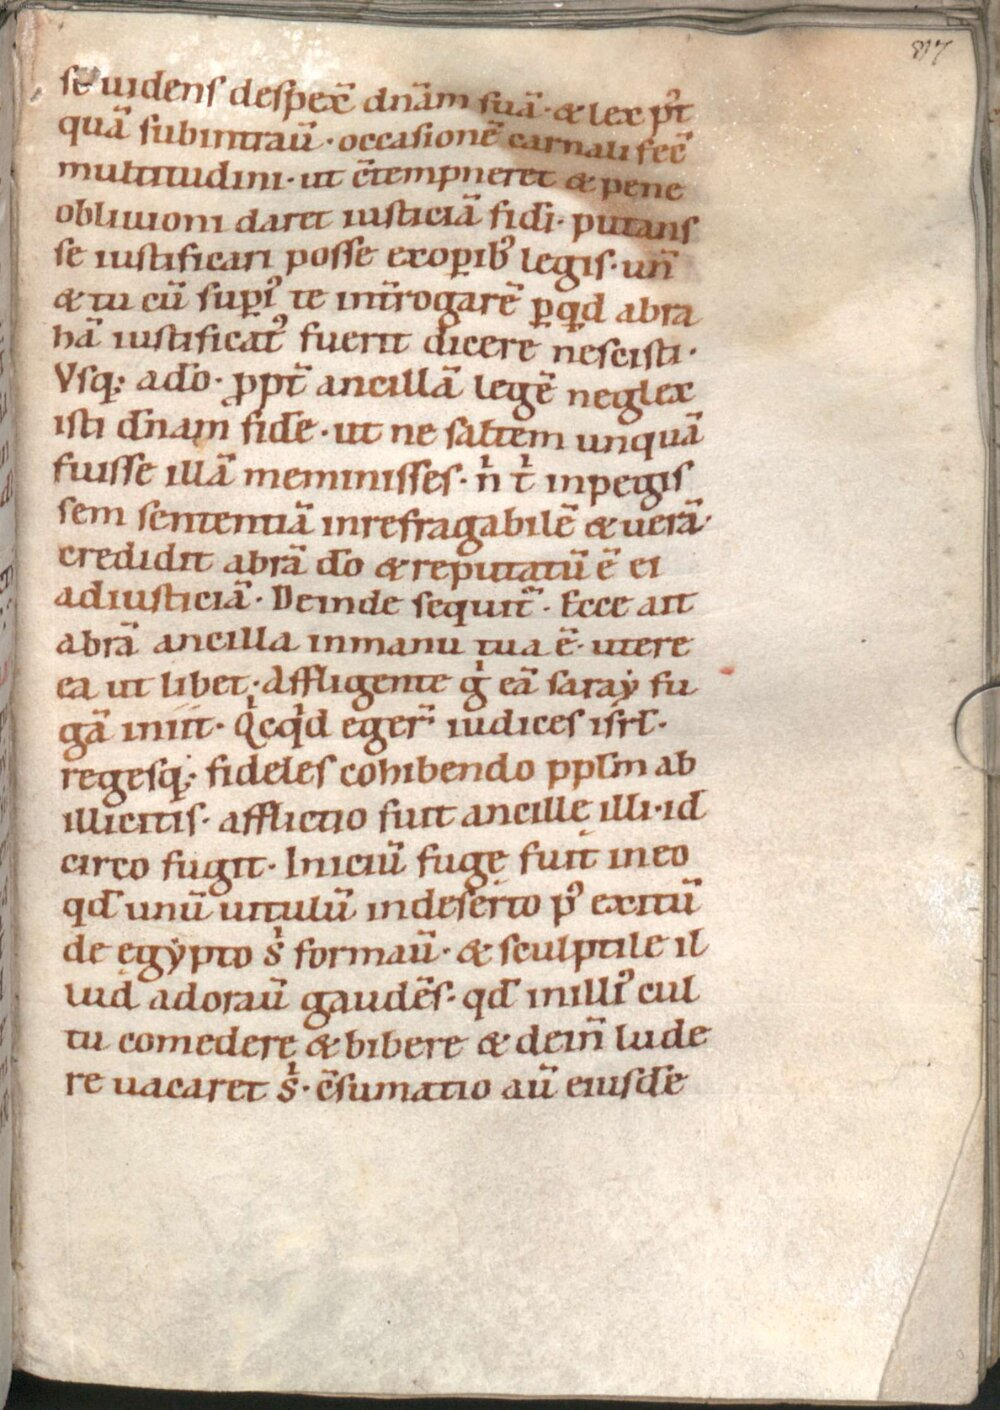 87
se uidens despex̄ dnām suā· & lex pͥt
quā subintrau̅· occasionē carnali fec̄
multitudini· ut c̄tempneret & pene
obliuioni daret iusticiā fidi· putans
se iustificari posse exop̱ibꝰ legis· un̄
& tu cū sup̱ꝰ te int̄rogarē p̱qd abra
hā iustificatꝰ fuerit dicere nescisti·
Vsq; ad̄o· ꝓpt̄ ancillā legē neglex
isti d̄nam fid̄e· ut ne saltem unquā
fuisse illā meminisses· n̍ t̍ inpegis
sem sententiā inrefragabilē & uerā·
credidit abrā d̄o & reputatū ē ei
adiusticiā· Deinde sequit̄· Ecce ait
abrā ancilla inmanu tua ē· utere
ea ut libet· Affligente g̍ eā saraẏ fu
gā iniit· Qͥcqͥd eger̄ iudices isrl̄·
regesq;· fideles cohibendo pplm̄ ab
illicitis· afflictio fuit ancillę illi· id
circo fugit· Iniciū fugę fuit ineo
qd̄ unū uitulū indeserto pꝰ exitū
de egẏpto s̍ formau̅· & sculptile il
lud adorau̅ gaudēs· qd̄ in illiꝰ cul
tu comedere & bibere & dein̄ lude
re uacaret s̍· c̄sumatio au̅ eiusd̄e